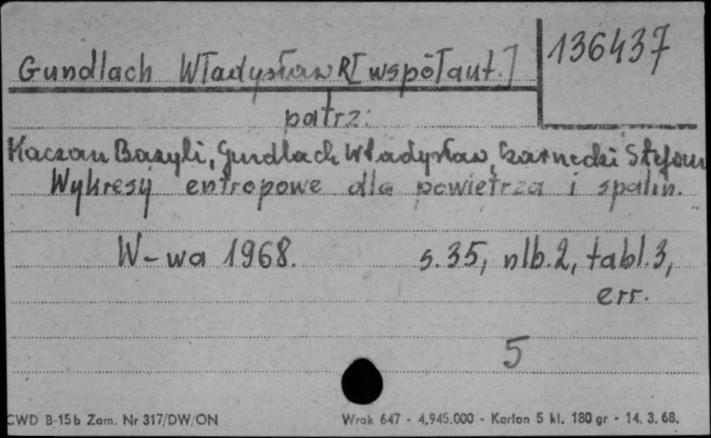 136437
Gundlach Władysław R[współaut.]
patrz:
Kaczan Bazyli, Gundlach Władysław, Czarnecki Stefan
Wykresy entropowe dla powietrza i spalin.
W-wa 1968. s.35, nlb.2, tabl.3,
err.
5
CWD B-15b Zam. Nr 317/DW/ON Wrak 647 - 4.945.000 - Karton 5 kl. 180 gr - 14. 3. 68.